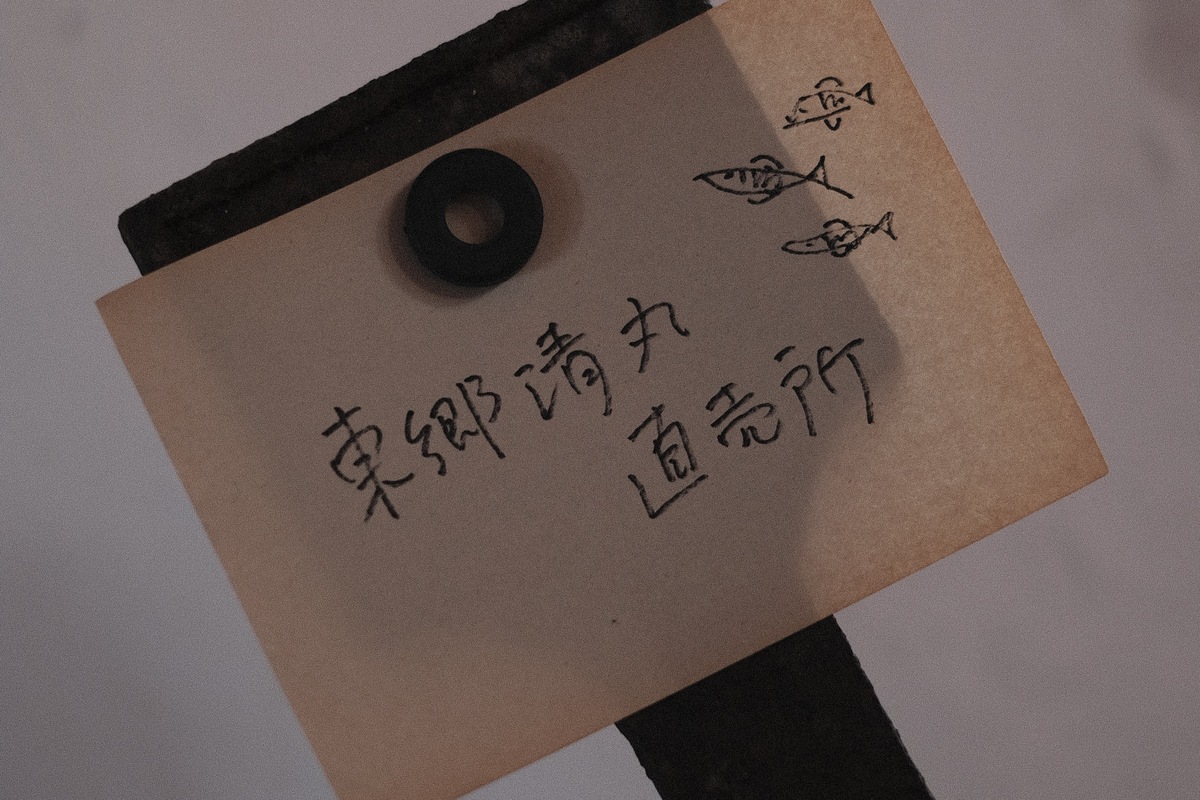 東郷清丸
直売所